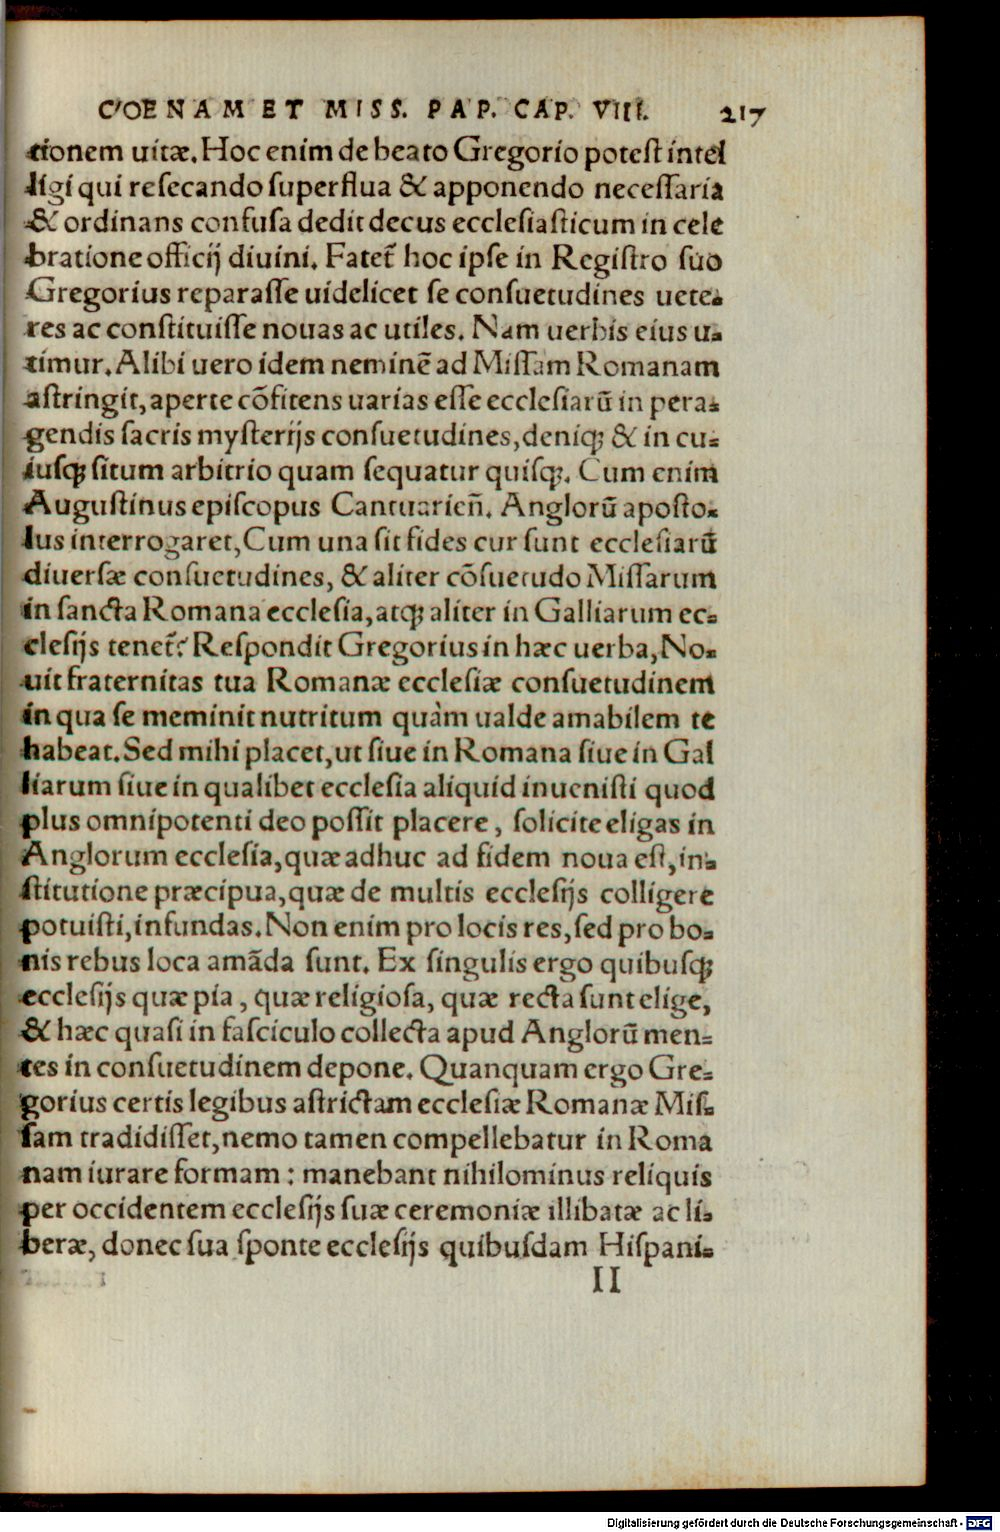 COENAM ET MISS. PAP. CAP. VIII. 217
tionem uitæ. Hoc enim de beato Gregorio potest intel
ligi qui resecando superflua & apponendo necessaria
& ordinans confusa dedit decus ecclesiasticum in cele
bratione officij diuini. Fatet᷑ hoc ipse in Registro suo
Gregorius reparasse uidelicet se consuetudines uete-
res ac constituisse nouas ac utiles. Nam uerbis eius u-
timur. Alibi uero idem neminẽ ad Missam Romanam
astringit, aperte cõfitens uarias esse ecclesiarũ in pera-
gendis sacris mysterijs consuetudines, deniqꝫ & in cu-
iusqꝫ situm arbitrio quam sequatur quisqꝫ. Cum enim
Augustinus episcopus Cantuarien̄. Anglorũ aposto-
lus interrogaret, Cum una sit fides cur sunt ecclesiarũ
diuersæ consuetudines, & aliter cõsuetudo Missarum
in sancta Romana ecclesia, atqꝫ aliter in Galliarum ec-
clesijs tenet᷑? Respondit Gregorius in hæc uerba, No-
uit fraternitas tua Romanæ ecclesiæ consuetudinem
in qua se meminit nutritum quàm ualde amabilem te
habeat. Sed mihi placet, ut siue in Romana siue in Gal
liarum siue in qualibet ecclesia aliquid inuenisti quod
plus omnipotenti deo possit placere, solicite eligas in
Anglorum ecclesia, quæ adhuc ad fidem noua est, in-
stitutione præcipua, quæ de multis ecclesijs colligere
potuisti, infundas. Non enim pro locis res, sed pro bo-
nis rebus loca amãda sunt. Ex singulis ergo quibusqꝫ
ecclesijs quæ pia, quæ religiosa, quæ recta sunt elige,
& hæc quasi in fasciculo collecta apud Anglorũ men-
tes in consuetudinem depone. Quanquam ergo Gre-
gorius certis legibus astrictam ecclesiæ Romanæ Mis-
sam tradidisset, nemo tamen compellebatur in Roma
nam iurare formam: manebant nihilominus reliquis
per occidentem ecclesijs suæ ceremoniæ illibatæ ac li-
beræ, donec sua sponte ecclesijs quibusdam Hispani-
II
Digitalisierung gefördert durch die Deutsche Forschungsgemeinschaft - DFG